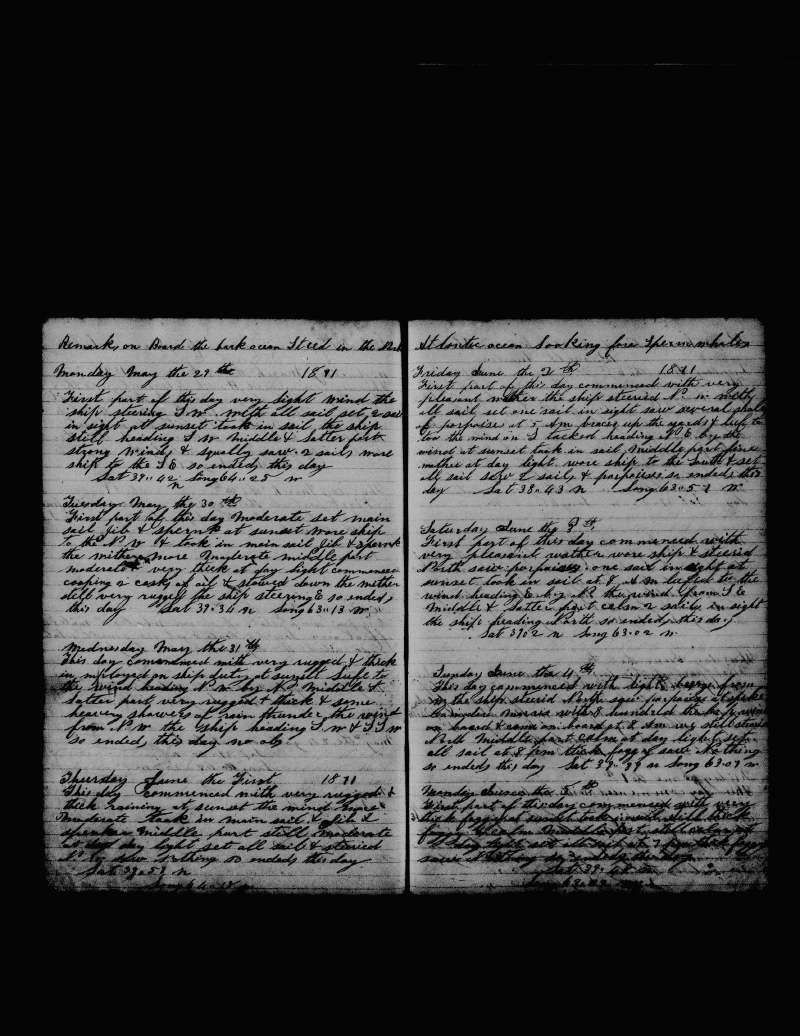 Remarks on Board the bark ocean Steed in the
Monday May the 29th 1871
First part of this day very light wind the
ship steering S.W. with all sail set, 2 sail
in sight at sunset took in sail, the ship
still heading S W Middle & Latter part
strong winds & squally saw 2 sails wore
ship to the S E so ended this day
Lat 39..42 N Long 64..25 W
Tuesday May the 30th
First part of this day Moderate set main
sail Jib & spenk at sunset wore ship
to the N W & took in main sail Jib & spenk
the wether more Moderate middle part
moderate & very thick at day light commenced
cooping 2 casks of oil & stowed down the wether
still very rugged the ship steering E so ended
this day Lat 39..34 N Long 63..13 W
Wednesday May the 31th
This day Commenced with very rugged & thick
in imployed on ship duty at sunset lufe to
the wind heading N W by N Middle &
Latter part very rugged & thick & some
heavey showers of rain thunder the wind
from N W the ship heading S W & S S W
so ended this day no obs
Thursday June the First 1871
This day commenced with very rugged &
thick raining at sunset the wind
Moderate took in main sail & Jib &
spenker Middle part still moderate
at day light set all sail & steried
saw Nothing so ended this day
Lat 39..53 N
Long 64..18 W
Atlantic ocean Looking fore Sperm whales
Friday June the 2th 1871
First part of this day commenced with very
pleasant wether the ship steeried N. W with
all sail set one sail in sight saw several shols
of porpoises at 5 Am braces up the yards & luf
too the wind on S tacked heading at E by the
wind at sunset took in sail Middle part fine
wether at day light wore ship to the South & set
all sail saw 2 sails & porpoises so ended this
day Lat 38..43 N Long 63..51 W
Saturday June the 3th
First part of this day commenced with
very pleasant wather wore ship & steeried
North saw porpoises one sail in sight at
sunset took in sail at 8 Am luffed to the
wind heading E by N the wind from S E
Middle & Latter part calm 2 sails in sight
the ship heading North so ended this day
Lat 39 02 N Long 63..02 W
Sunday June the 4th
This day commenced with light breeze from
W the ship steerid North saw porpoises
with 8 hundred
on board & came on board at 8 Am
North Middle part calm at day light set
all sail at 8 pm thick foggy saw Nothing
so ended this day Lat 39..39 N Long 63..07 W
Monday June the 5th
First part of this day commenced with very
thick foggy at sunset took in sail still thick
foggy & calm Middle part still calm at
day light set all sail at 7 pm thick foggy
saw Nothing so ended this day
Lat 39